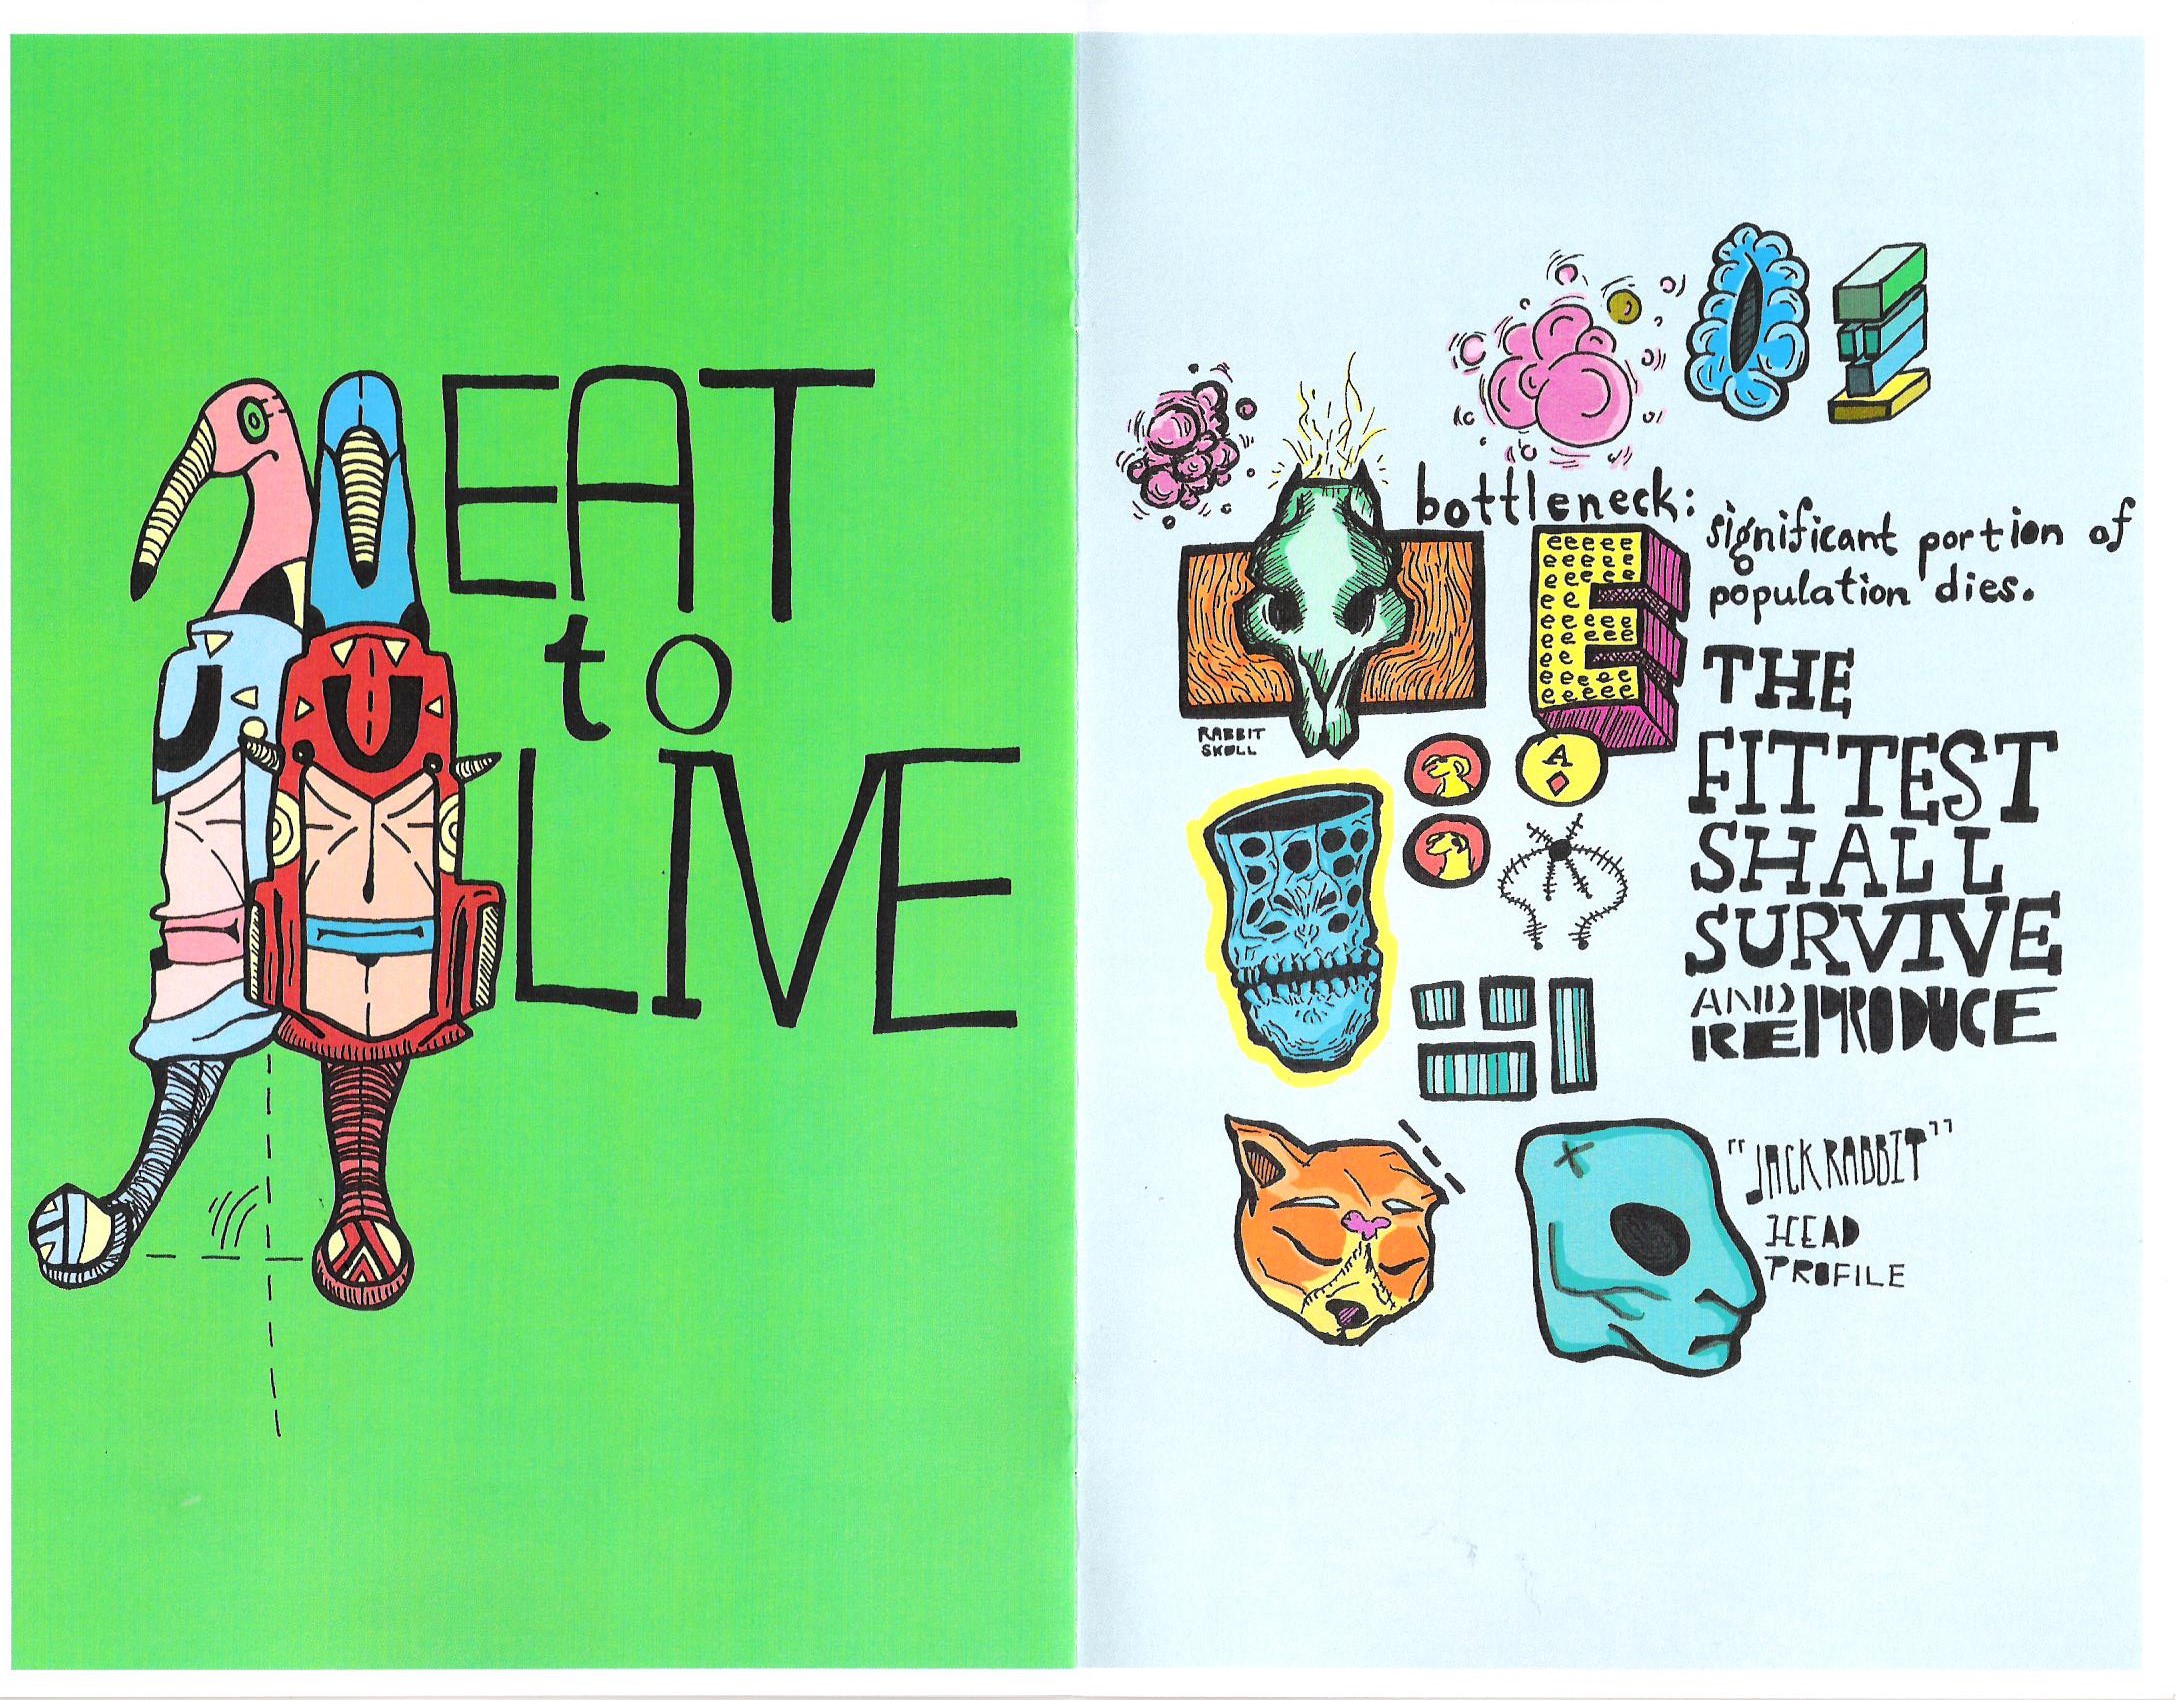 EAT
to
LIVE
bottleneck:
significant portion of
population dies.
E
THE
FITTEST
SHALL
SURVIVE
AND
REPRODUCE
RABBIT
SKULL
A
"JACK RABBIT"
HEAD
PROFILE